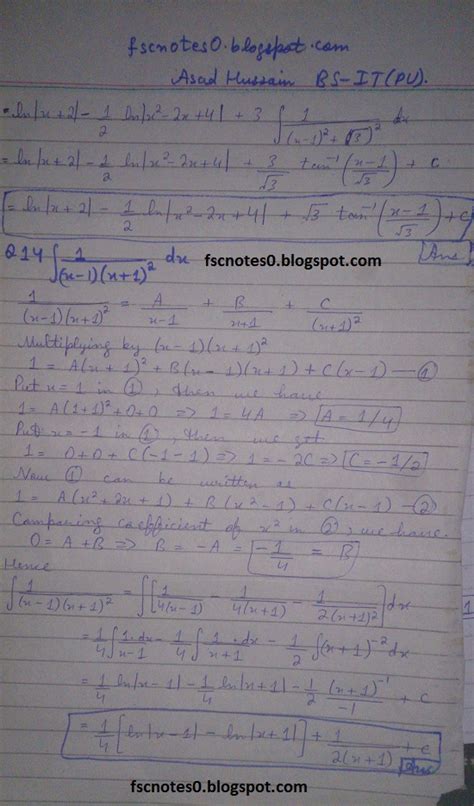 fscnotes0.blogspot.com
Asad Hussain BS-IT(PU).
= ln|x+2| - 1/2 ln|x²-2x+4| + 3 ∫ 1/((x-1)²+(√3)²) dx
= ln|x+2| - 1/2 ln|x²-2x+4| + 3/√3 tan⁻¹((x-1)/√3) + c
= ln|x+2| - 1/2 ln|x²-2x+4| + √3 tan⁻¹((x-1)/√3) + c
Ans
Q14 ∫ 1/((x-1)(x+1)²) dx fscnotes0.blogspot.com
1/((x-1)(x+1)²) = A/(x-1) + B/(x+1) + C/(x+1)²
Multiplying by (x-1)(x+1)²
1 = A(x+1)² + B(x-1)(x+1) + C(x-1) — ①
Put x=1 in ①, then we have
1 = A(1+1)² + 0+0 => 1=4A => A = 1/4
Put x=-1 in ①, then we get
1 = 0+0 + C(-1-1) => 1=-2C => C=-1/2
Now ① can be written as
1 = A(x²+2x+1) + B(x²-1) + C(x-1) — ②
Comparing coefficient of x² in ②, we have.
0 = A+B => B = -A = -1/4 = B
Hence
∫ 1/((x-1)(x+1)²) = ∫ [1/(4(x-1)) - 1/(4(x+1)) - 1/(2(x+1)²)] dx
= 1/4 ∫ 1·dx/(x-1) - 1/4 ∫ 1/(x+1) · dx - 1/2 ∫(x+1)⁻² dx
= 1/4 ln|x-1| - 1/4 ln|x+1| - 1/2 (x+1)⁻¹/-1 + c
= 1/4 [ln|x-1| - ln|x+1|] + 1/(2(x+1)) + c
Ans
fscnotes0.blogspot.com